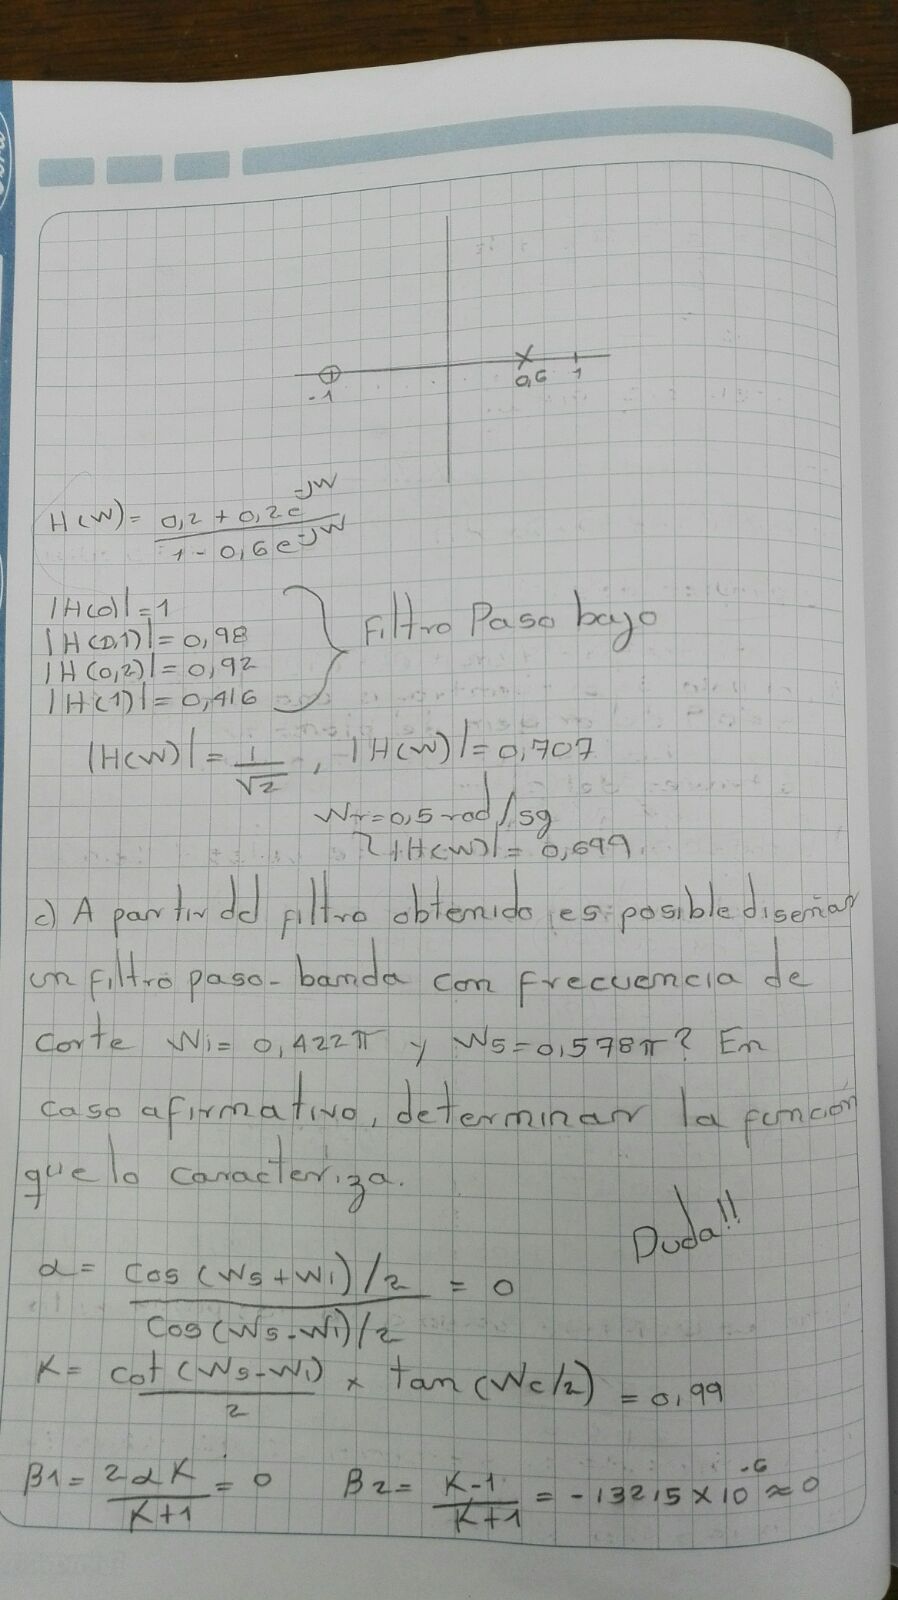 -1
0,6
1
H(W)= 0,2 + 0,2e^-JW / 1 - 0,6e^-JW
|H(0)|=1
|H(0,1)|= 0,98
|H(0,2)|= 0,92
|H(1)|= 0,416
Filtro Paso bajo
|H(W)|= 1/√2 , |H(W)|= 0,707
Wr=0,5 rad/sg
|H(W)|= 0,699
c) A partir del filtro obtenido es posible diseñar
un filtro paso-banda con frecuencia de
corte Wi= 0,422π y Ws=0,578π? En
caso afirmativo, determinar la función
que lo caracteriza.
Duda!!
α= cos(Ws+Wi)/2 / cos(Ws-Wi)/2 = 0
K= cot(Ws-Wi)/2 × tan(Wc/2) = 0,99
β1= 2αK / K+1 = 0    β2= K-1 / K+1 = -132,5×10^-6 ≈ 0